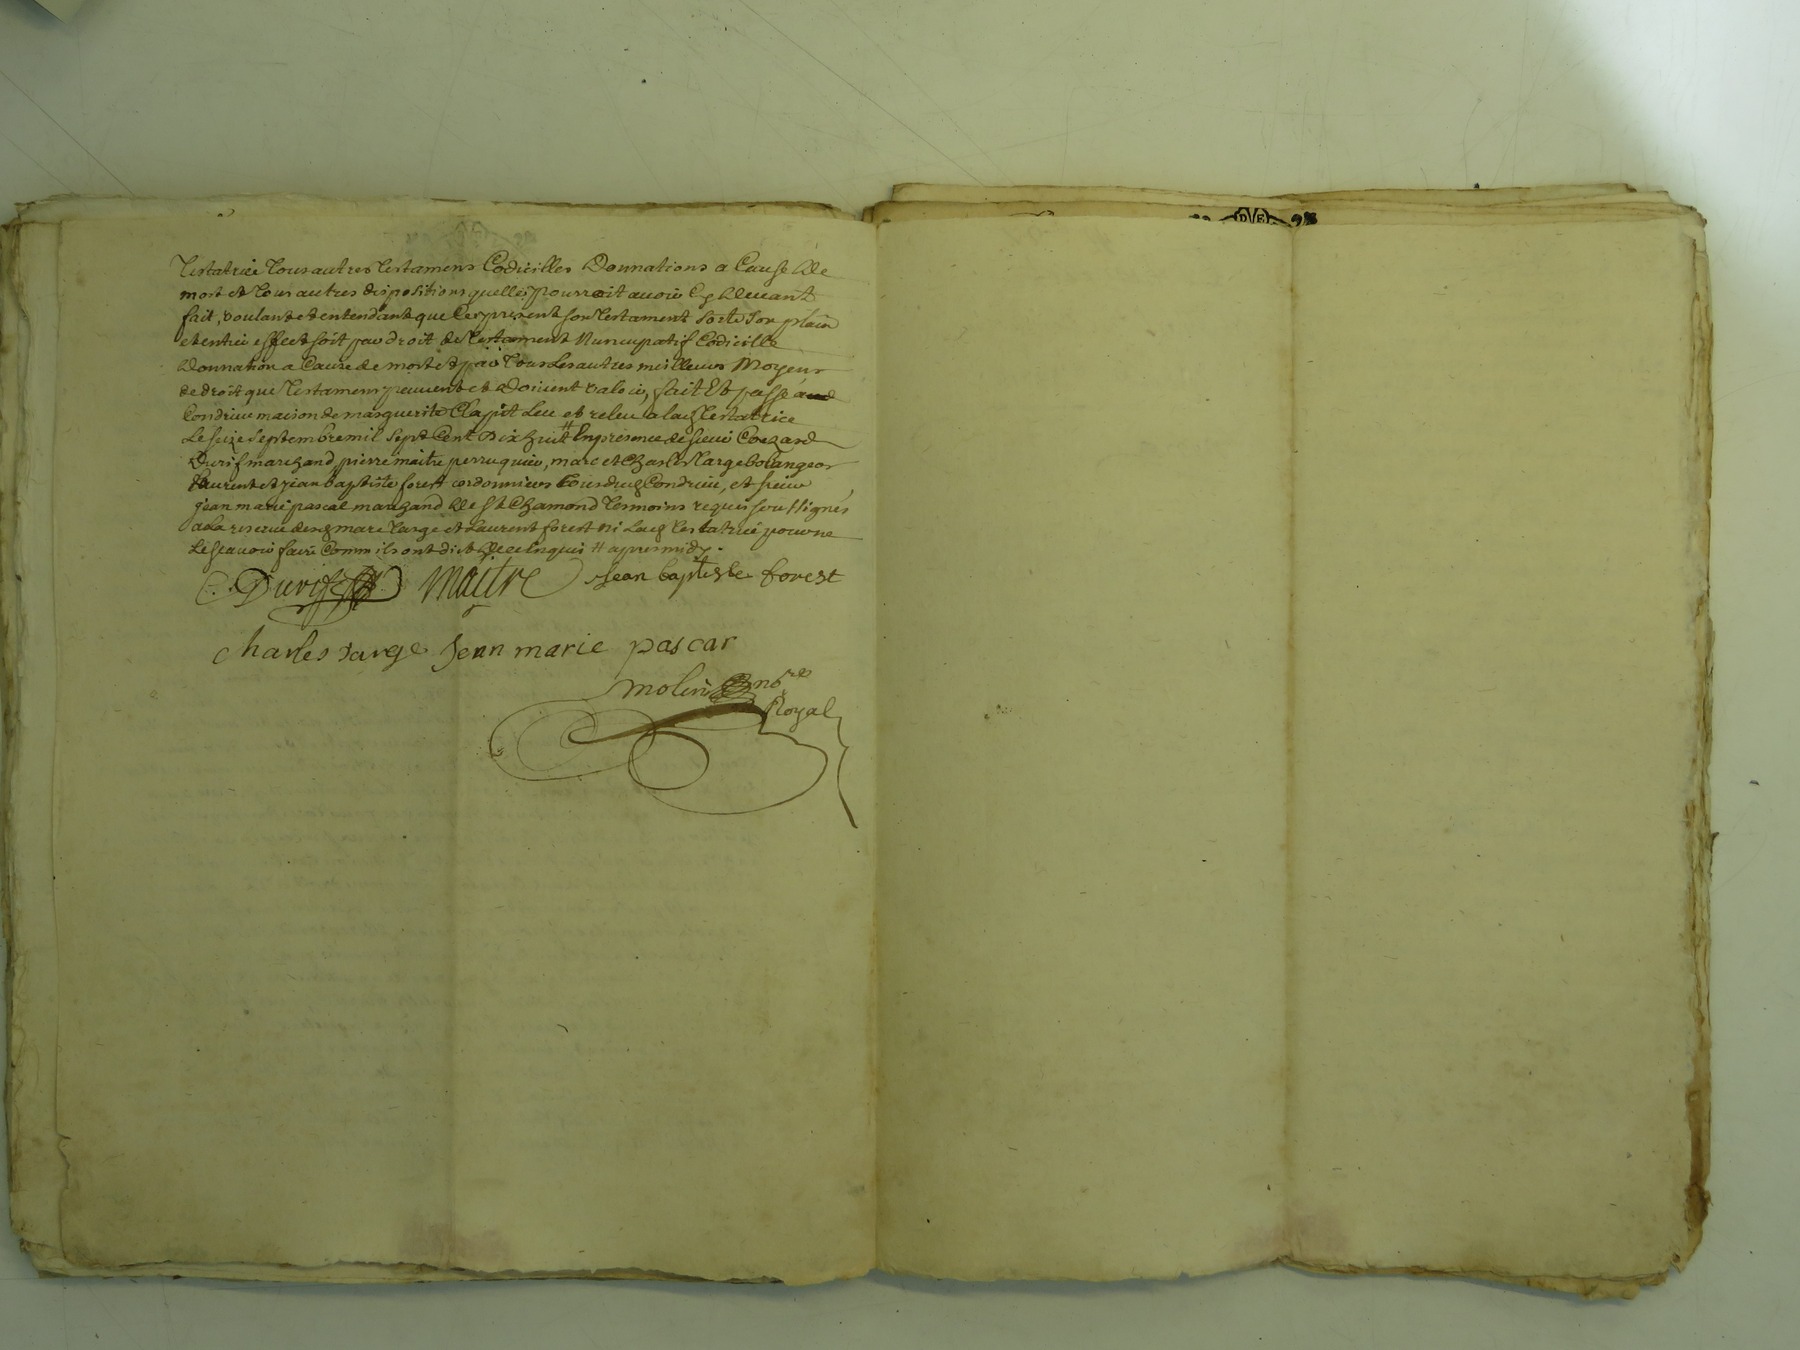 Testatrice tous autres testamens Codicilles Donnations a Cause de
mort et tous autres dispositions quelles pourroit avoir Cy devant
fait, voulant et entendant que Le present son testament sorte son plain
et entier effect soit par droit de testament Nuncupatif Codicille
donnation a Cause de mort et par tous Les autres meilleurs Moyens
de droit que testamens peuvent et doivent valoir, fait Et passé a
Condrieu maison de marguerite Clapit Leu et releu a lad testatrice
Le seize septembre mil sept Cent dix huit # En presence de sieur
Durif marchand, pierre maitre perruquier, marc et Charles targe bolangers
Laurent et jean baptiste forest cordonniers tous dud Condrieu, et sieur
jean marie pascal marchand de St Chamond tesmoins requis soussignés
a La reserve desd marc targe et Laurent forest ni Lad testatrice pour ne
Le scavoir faire Comm ils ont dit de ce Enquis # apres midy.
Durif maitre jean baptiste forest
charles targe Jean marie pascar
molin n.re
Royal